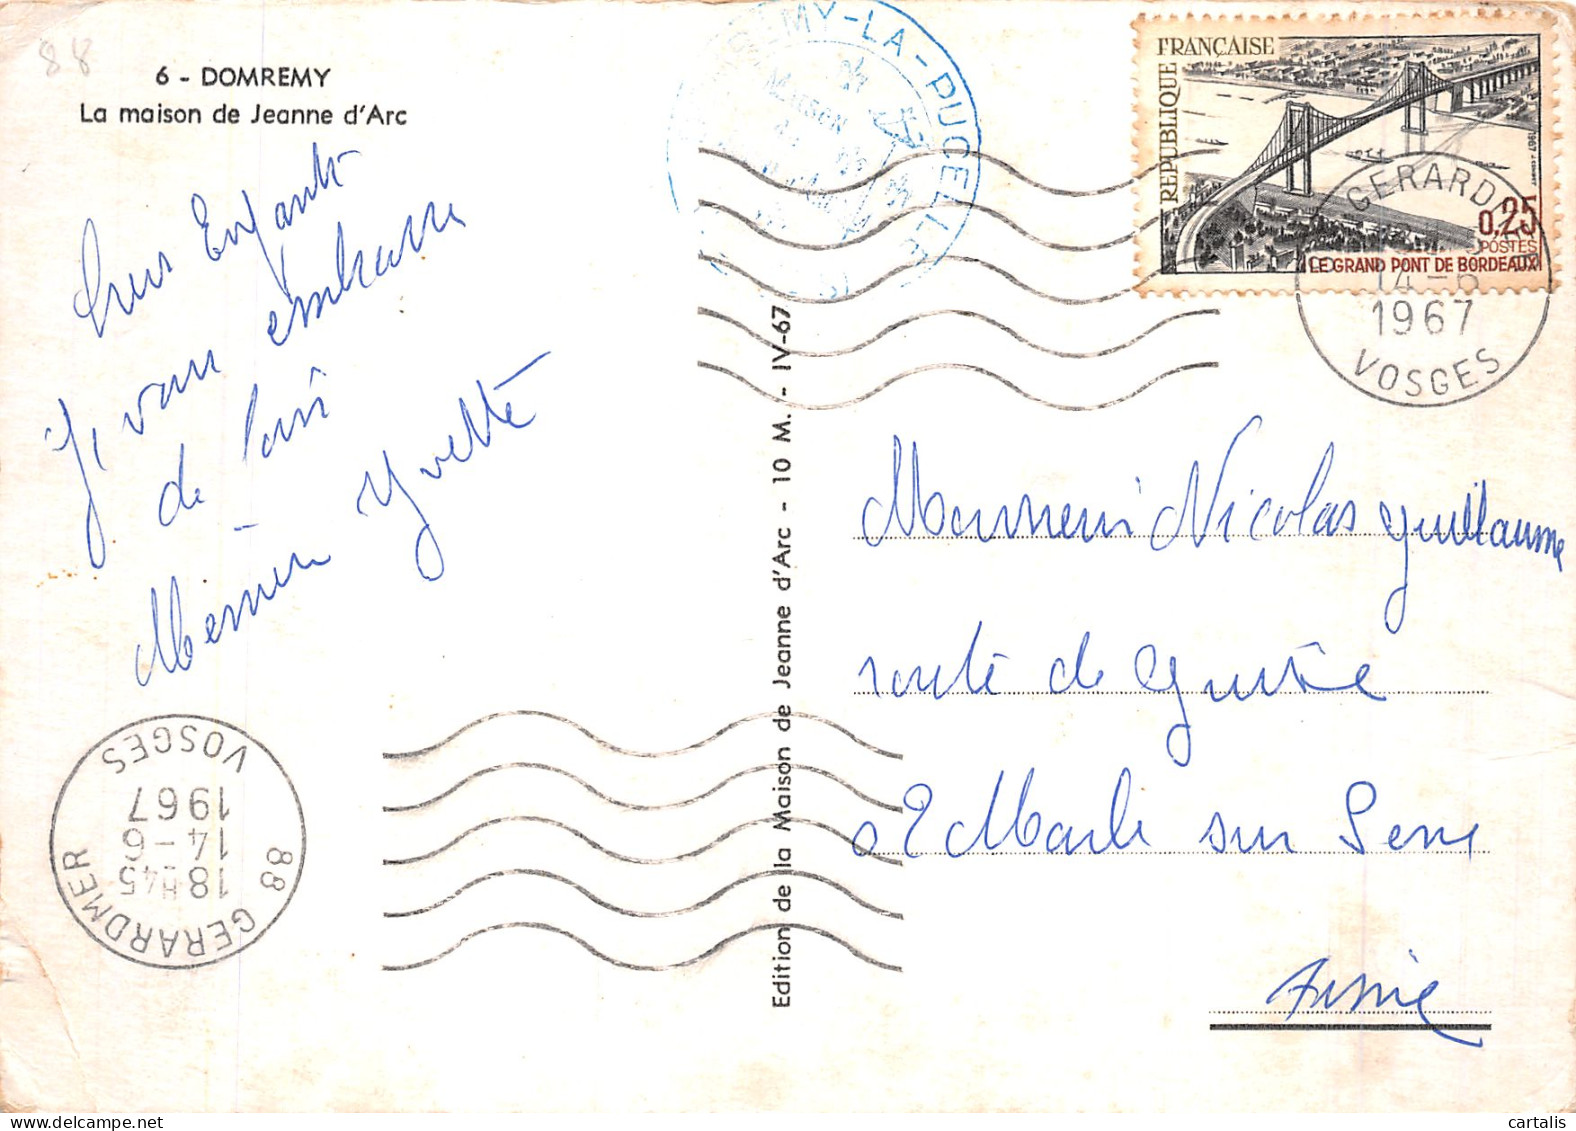 88
6 - DOMREMY
La maison de Jeanne d'Arc
Chers Enfants
Je vous embrasse
de loin
Mémein Yvette
88 GERARDMER
18H45
14-6
1967
VOSGES
Edition de la Maison de Jeanne d'Arc - 10 M. - IV-67
REMY-LA-PUCELLE
MAISON
REPUBLIQUE FRANÇAISE
1967
0,25
POSTES
LE GRAND PONT DE BORDEAUX
GERARDMER
14-6
1967
VOSGES
Monsieur Nicolas Guillaume
route de Guise
02 Marle sur Serre
Aisne
cartalis
www.delcampe.net